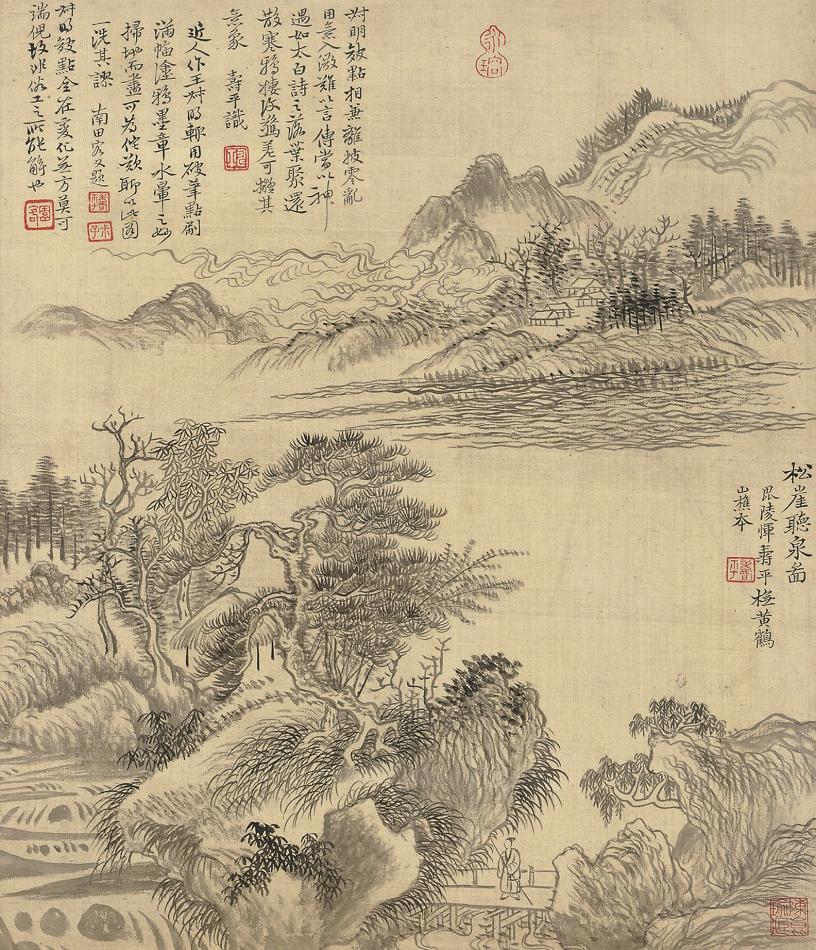 松崖聽泉圖
毘陵惲壽平橅黃鶴
山樵本
壽平
永瑢
叔明皴點相兼離披零亂
用意入微難以言傳當以神
遇如太白詩之落葉聚還
散寒鴉棲復驚差可擬其
意象 壽平識
近人作王叔明輒用破筆點刷
滿幅塗鴉墨章水暈之妙
掃地而盡可為侘歎聊以此圖
一洗其謬 南田客又題
叔明皴點全在變化無方莫可
端倪故非俗工之所能解也